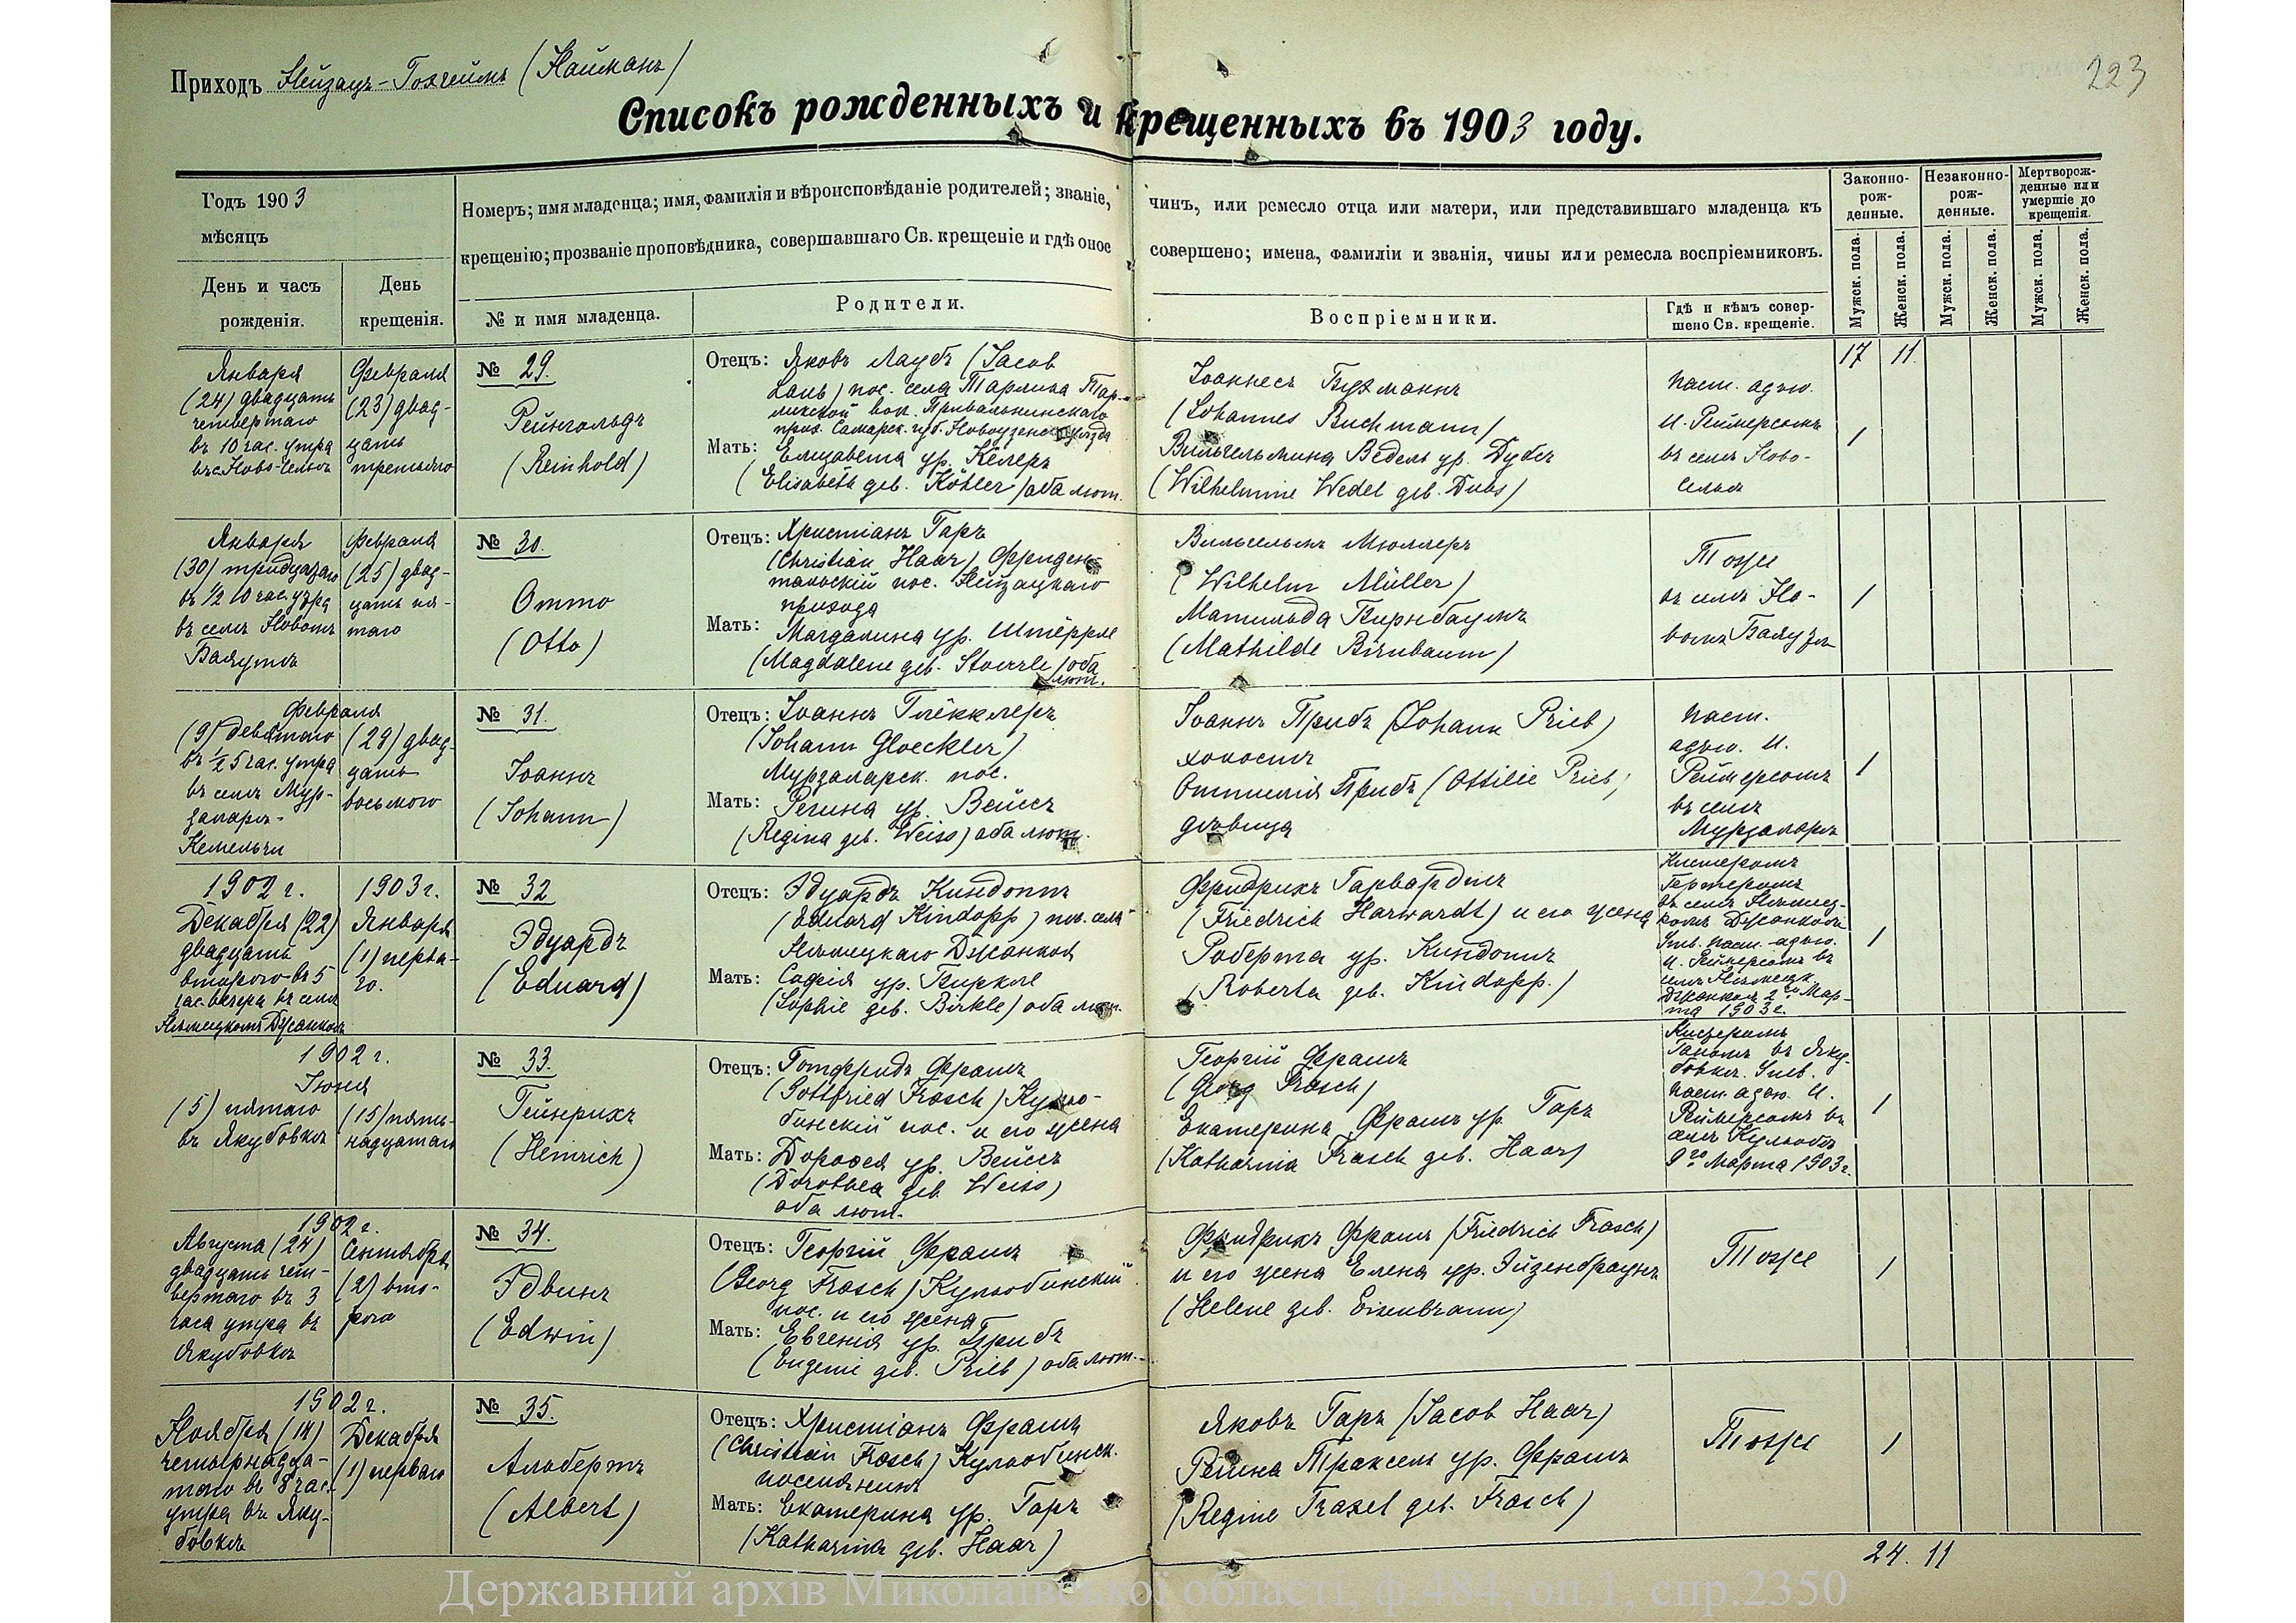 Приходъ Нейзацъ-Гохгеймъ (Найманъ)
223
Списокъ рожденныхъ и крещенныхъ въ 1903 году.
Годъ 1903
мѣсяцъ
День и часъ
рожденія.
День
крещенія.
Номеръ; имя младенца; имя, фамилія и вѣроисповѣданіе родителей; званіе,
крещенію; прозваніе проповѣдника, совершавшаго Св. крещеніе и гдѣ оное
№ и имя младенца.
Родители.
чинъ, или ремесло отца или матери, или представившаго младенца къ
совершено; имена, фамиліи и званія, чины или ремесла воспріемниковъ.
Воспріемники.
Гдѣ и кѣмъ совер-
шено Св. крещеніе.
Законно-
рож-
денные.
Незаконно-
рож-
денные.
Мертворож-
денные или
умершіе до
крещенія.
Мужск. пола.
Женск. пола.
Мужск. пола.
Женск. пола.
Мужск. пола.
Женск. пола.
17 11.
Января
(24) двадцать
четвертаго
въ 10 час. утра
въ с. Ново-Сельѣ
Февраля
(23) двад-
цать
третьяго
№ 29.
Рейнгольдъ
(Reinhold)
Отецъ: Яковъ Лаубъ (Jacob
Laub) пос. села Тарлика Тар-
ликской вол. Привальнинскаго
прих. Самарск. губ. Новоузенс. уѣзда
Мать: Елизавета ур. Кёлеръ
(Elisabeth geb. Köhler) оба лют.
Іоаннесъ Бухманнъ
(Johannes Buchmann)
Вильгельмина Ведель ур. Дубсъ
(Wilhelmine Wedel geb. Dubs)
паст. адъю.
И. Реймерсомъ
въ селѣ Ново-
Сельѣ
1
Января
(30) тридцатаго
въ ½ 10 час. утра
въ селѣ Новомъ
Баяутѣ
Февраля
(25) двад-
цать пя-
таго
№ 30.
Отто
(Otto)
Отецъ: Христіанъ Гаръ
(Christian Haar) Фриден-
тальскій пос. Нейзацкаго
прихода
Мать: Магдалина ур. Штёррле
(Magdalene geb. Stoerrle) оба
лют.
Вильгельмъ Мюллеръ
(Wilhelm Müller)
Матильда Бирнбаумъ
(Mathilde Birnbaum)
Тоже
въ селѣ Но-
вомъ Баяутѣ
1
Февраля
(9) девятаго
въ ½ 5 час. утра
въ селѣ Мур-
заларъ-
Кемельчи
(28) двад-
цать
восьмого
№ 31.
Іоаннъ
(Johann)
Отецъ: Іоаннъ Глёкклеръ
(Johann Gloeckler)
Мурзаларск. пос.
Мать: Регина ур. Вейссъ
(Regina geb. Weiss) оба лют.
Іоаннъ Прибъ (Johann Prieb)
холостъ
Оттилія Прибъ (Ottilie Prieb)
дѣвица
паст.
адъю. И.
Реймерсомъ
въ селѣ
Мурзаларъ
1
1902 г.
Декабря (22)
двадцать
второго въ 5
час. вечера въ селѣ
Нѣмецкомъ Джанкоѣ
1903 г.
Января
(1) перва-
го.
№ 32
Эдуардъ
(Eduard)
Отецъ: Эдуардъ Киндоппъ
(Eduard Kindopp) пос. села
Нѣмецкаго Джанкоя
Мать: Софія ур. Биркле
(Sophie geb. Birkle) оба лют.
Фридрихъ Гарвардтъ
(Friedrich Harwardt) и его жена
Роберта ур. Киндоппъ
(Roberta geb. Kindopp.)
Кистеромъ
Гертеромъ
въ селѣ Нѣмец-
комъ Джанкоѣ
Утв. паст. адъю.
И. Реймерсомъ въ
селѣ Нѣмецк.
Джанкоѣ 2го Мар-
та 1903 г.
1
1902 г.
Іюня
(5) пятаго
въ Якубовкѣ
(15) пять-
надцатаго
№ 33.
Гейнрихъ
(Heinrich)
Отецъ: Готфридъ Фрашъ
(Gottfried Frasch) Кульо-
бинскій пос. и его жена
Мать: Доротея ур. Вейссъ
(Dorothea geb. Weiss)
оба лют.
Георгій Фрашъ
(Georg Frasch)
Екатерина Фрашъ ур. Гаръ
(Katharina Frasch geb. Haar)
Кистеромъ
въ Яку-
бовкѣ. Утв.
паст. адъю. И.
Реймерсомъ въ
селѣ Кульобѣ
9го Марта 1903 г.
1
1902 г.
Августа (24)
двадцать чет-
вертаго въ 3
часа утра въ
Якубовкѣ
Сентября
(2) вто-
рого
№ 34.
Эдвинъ
(Edwin)
Отецъ: Георгій Фрашъ
(Georg Frasch) Кульобинскій
пос. и его жена
Мать: Евгенія ур. Прибъ
(Eugenie geb. Prieb) оба лют.
Фридрихъ Фрашъ (Friedrich Frasch)
и его жена Елена ур. Эйзенбраунъ
(Helene geb. Eisenbraun)
Тоже
1
1902 г.
Ноября (14)
четырнадца-
таго въ 8 час.
утра въ Яку-
бовкѣ
Декабря
(1) перваго
№ 35.
Альбертъ
(Albert)
Отецъ: Христіанъ Фрашъ
(Christian Frasch) Кульобинск.
поселянинъ
Мать: Екатерина ур. Гаръ
(Katharina geb. Haar)
Яковъ Гаръ (Jacob Haar)
Регина Траксель ур. Фрашъ
(Regine Traxel geb. Frasch)
Тоже
1
24. 11
Державний архів Миколаївської області, ф.484, оп.1, спр.2350